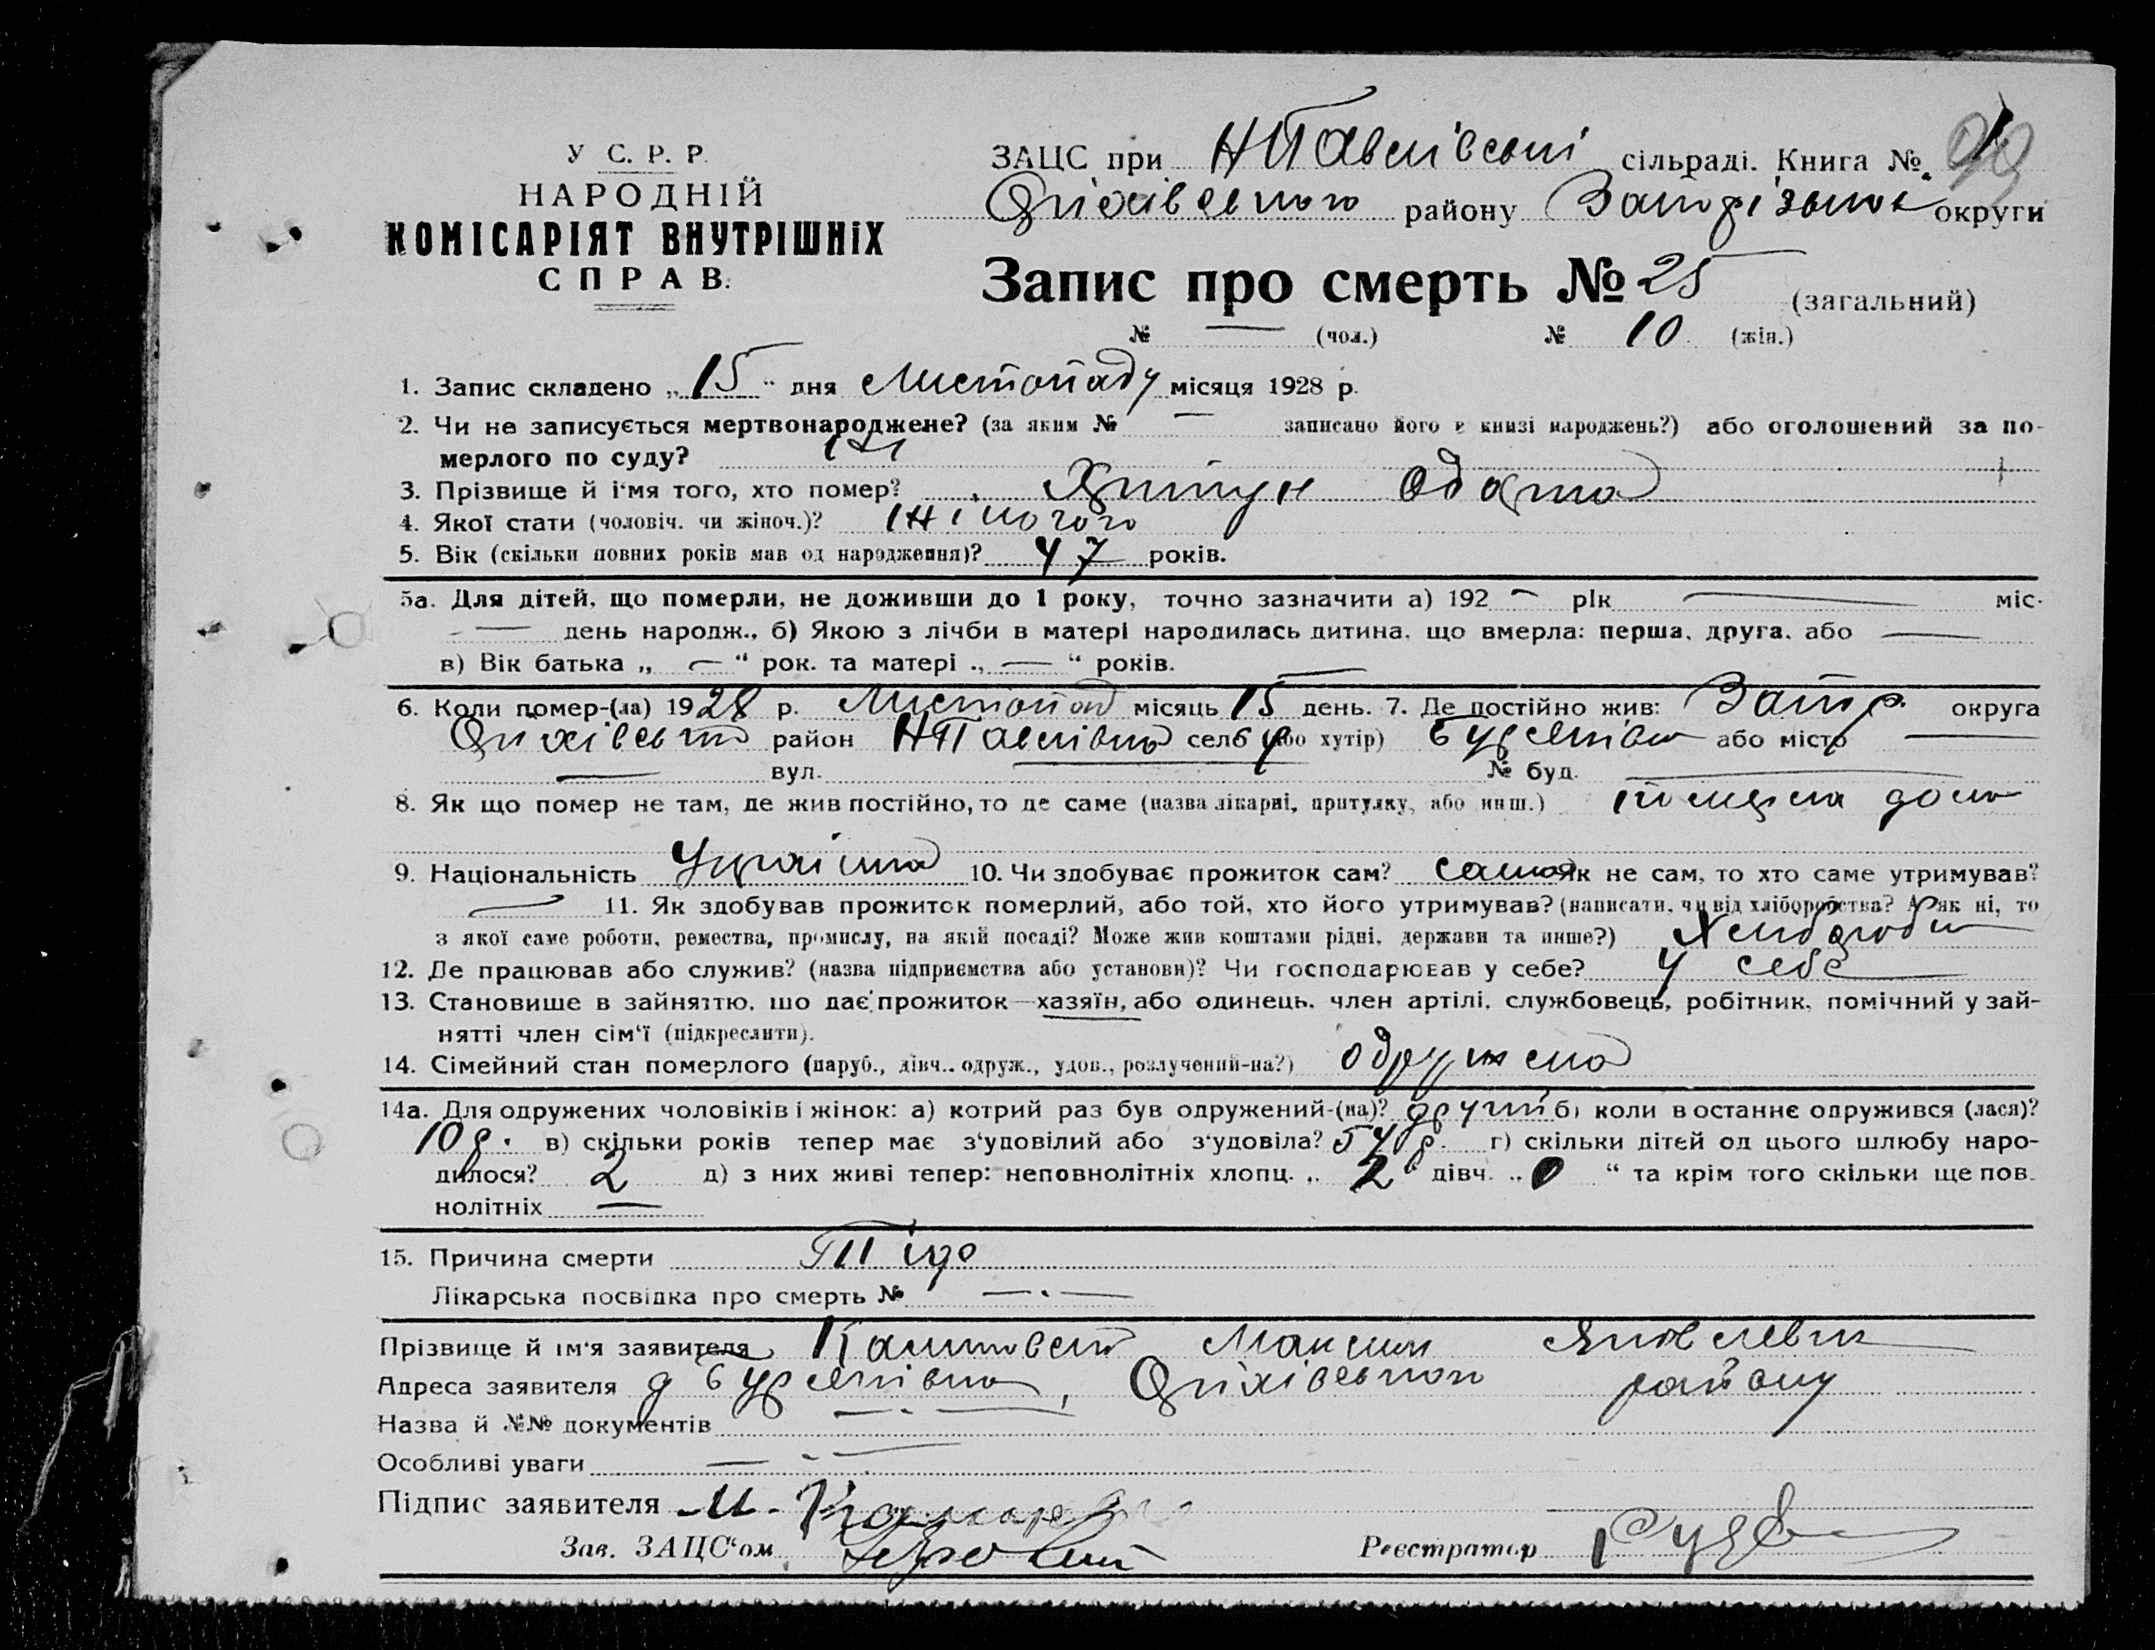 У С. Р. Р.
НАРОДНІЙ
КОМІСАРІЯТ ВНУТРІШНіХ
СПРАВ.
ЗАЦС при НПавлівські сільраді. Книга №
Оріхівського району Запорізької округи
Запис про смерть № 25 (загальний)
№ — (чол.) № 10 (жін.)
1. Запис складено „15“ дня Листопаду місяця 1928 р.
2. Чи не записується мертвонароджене? (за яким № — записано його в книзі народжень?) або оголошений за по-
мерлого по суду? ні
3. Прізвище й і‘мя того, хто помер?
4. Якої стати (чоловіч. чи жіноч.)? жіночого
5. Вік (скільки повних років мав од народження)? 47 років.
5а. Для дітей, що померли, не доживши до 1 року, точно зазначити а) 192 — рік — міс.
— день народж., б) Якою з лічби в матері народилась дитина, що вмерла: перша, друга, або —
в) Вік батька „ — “ рок. та матері „ — “ років.
6. Коли помер-(ла) 1928 р. Листопад місяць 15 день. 7. Де постійно жив: Запор. округа
Оріхівський район НПавлівка село (або хутір) або місто —
— вул. — № буд. —
8. Як що помер не там, де жив постійно, то де саме (назва лікарні, притулку, або инш.) померла дома
9. Національність Українка 10. Чи здобуває прожиток сам? сама Як не сам, то хто саме утримував?
— 11. Як здобував прожиток померлий, або той, хто його утримував? (написати, чи від хліборобства? А як ні, то
з якої саме роботи, ремества, промислу, на якій посаді? Може жив коштами рідні, держави та инше?) Хлібороби
12. Де працював або служив? (назва підприємства або установи)? Чи господарював у себе? у себе
13. Становище в зайняттю, що дає прожиток—хазяїн, або одинець, член артілі, службовець, робітник, помічний у зай-
нятті член сім‘ї (підкреслити).
14. Сімейний стан померлого (паруб., дівч., одруж., удов., розлучений-на?) одружена
14а. Для одружених чоловіків і жінок: а) котрий раз був одружений-(на)? другий б) коли в останнє одружився (лася)?
10 р. в) скільки років тепер має з‘удовілий або з‘удовіла? 54 р. г) скільки дітей од цього шлюбу наро-
дилося? 2 д) з них живі тепер: неповнолітніх хлопц. „ 2 “ дівч. „ 0 “ та крім того скільки ще пов.
нолітніх —
15. Причина смерти
Лікарська посвідка про смерть № —.—
Прізвище й ім‘я заявителя Максим Яковлевич
Адреса заявителя Оріхівського району
Назва й №№ документів —.—
Особливі уваги — . —
Підпис заявителя
Зав. ЗАЦС‘ом
Реєстратор